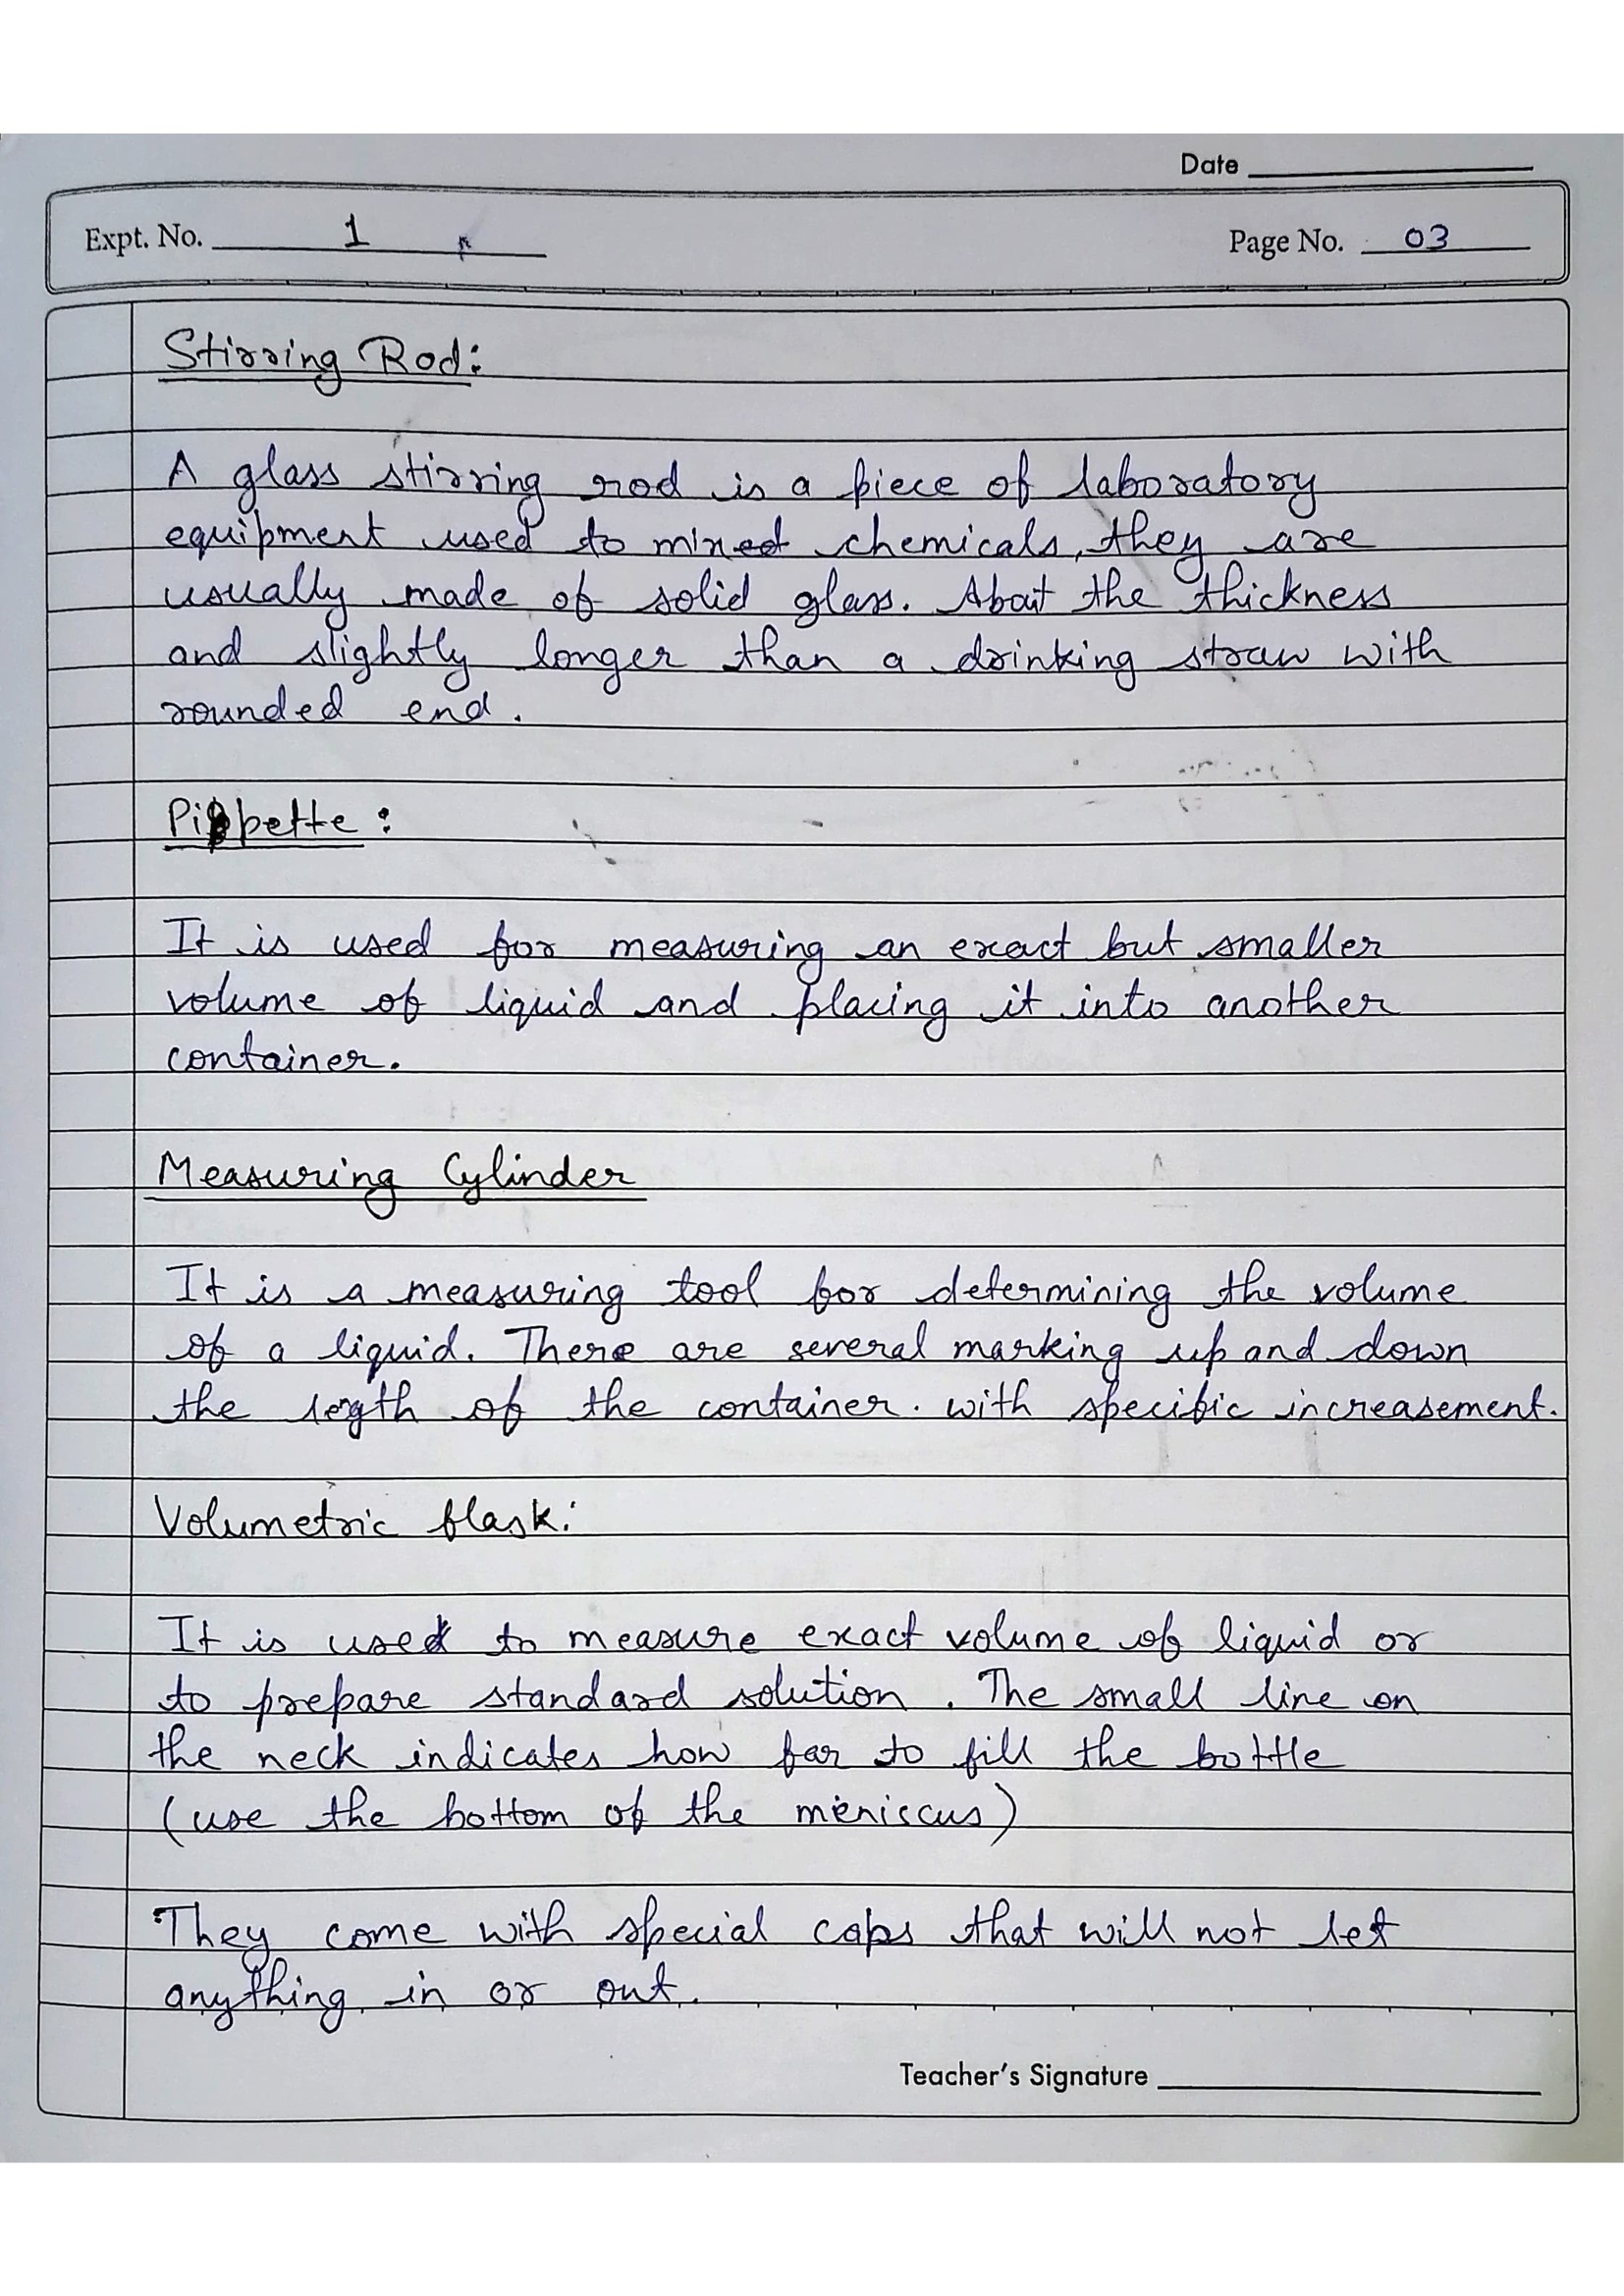 Date
Expt. No. 1
Page No. 03
Stirring Rod:
A glass stirring rod is a piece of laboratory
equipment used to mixed chemicals, they are
usually made of solid glass. About the thickness
and slightly longer than a drinking straw with
rounded end.
Pippette :
It is used for measuring an exact but smaller
volume of liquid and placing it into another
container.
Measuring Cylinder
It is a measuring tool for determining the volume
of a liquid. There are several marking up and down
the length of the container. with specific increasement.
Volumetric flask:
It is used to measure exact volume of liquid or
to prepare standard solution. The small line on
the neck indicates how far to fill the bottle
(use the bottom of the meniscus)
They come with special caps that will not let
anything in or out.
Teacher's Signature